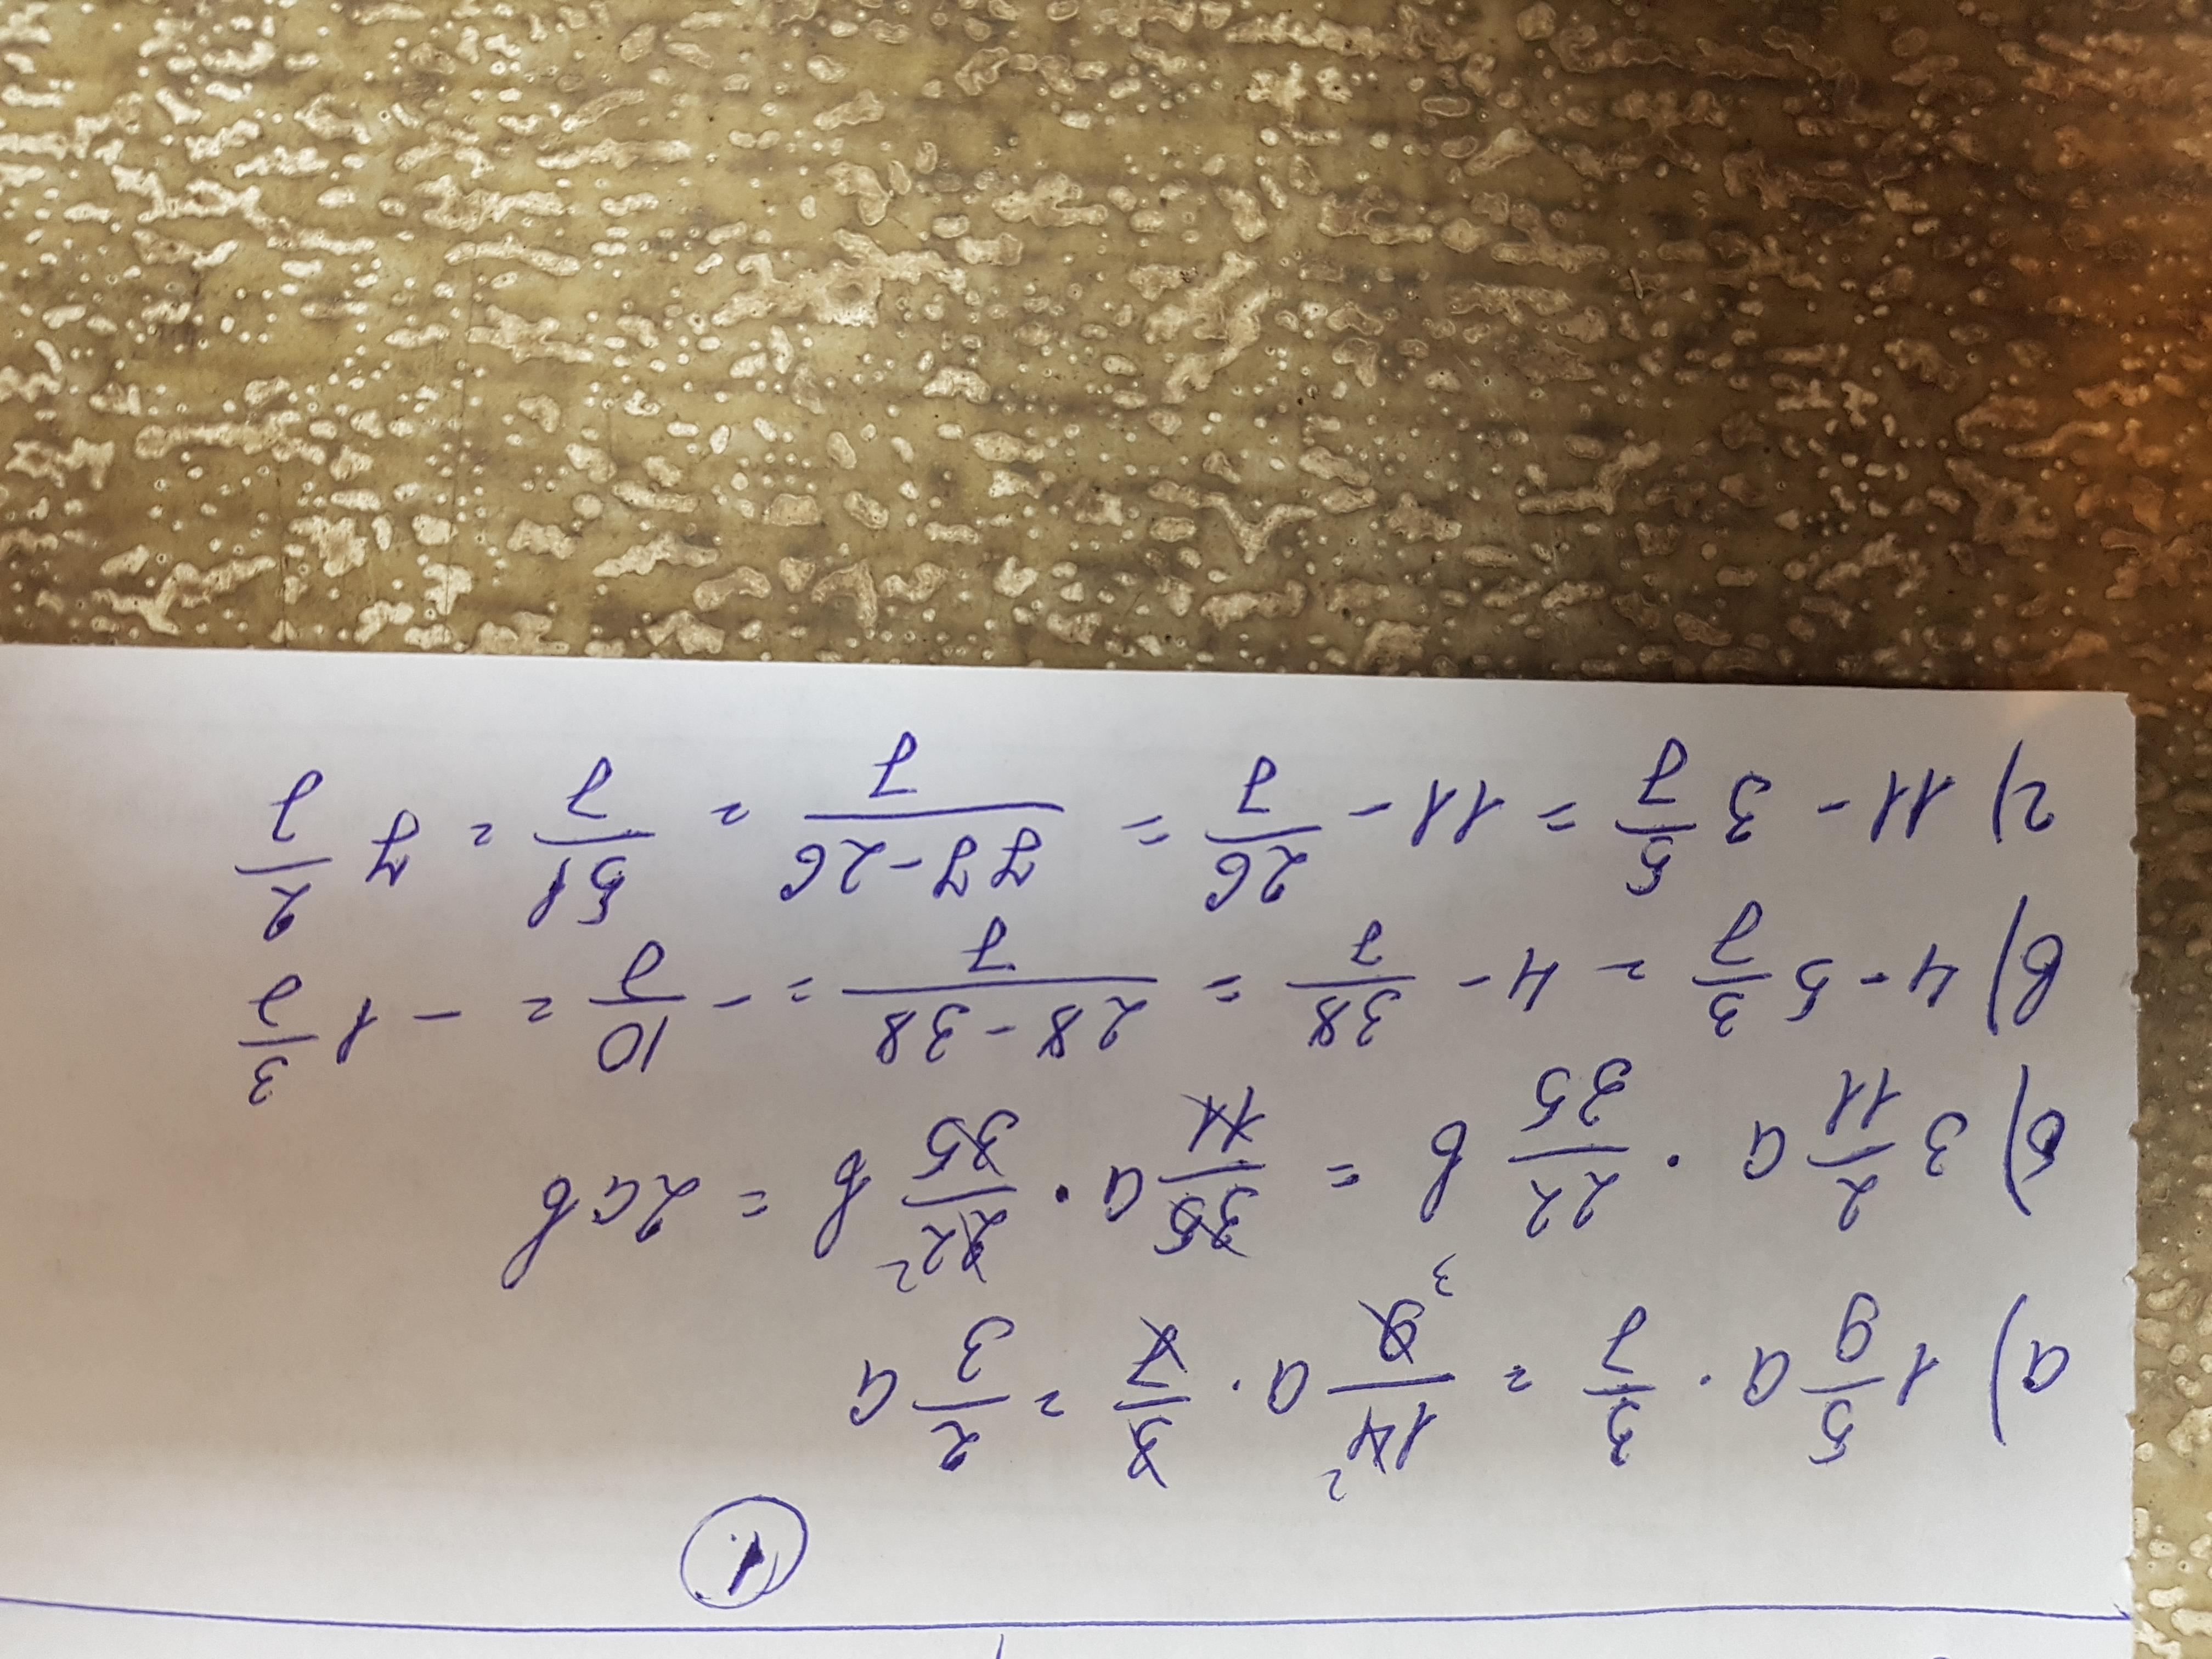 1.
а) 1 5/9 a · 3/7 = 14²/9³ a · 3/7 = 2/3 a
б) 3 2/11 a · 22/35 b = 35/11 a · 22²/35 b = 2ab
в) 4 - 5 3/7 = 4 - 38/7 = (28 - 38)/7 = - 10/7 = - 1 3/7
г) 11 - 3 5/7 = 11 - 26/7 = (77 - 26)/7 = 51/7 = 7 2/7